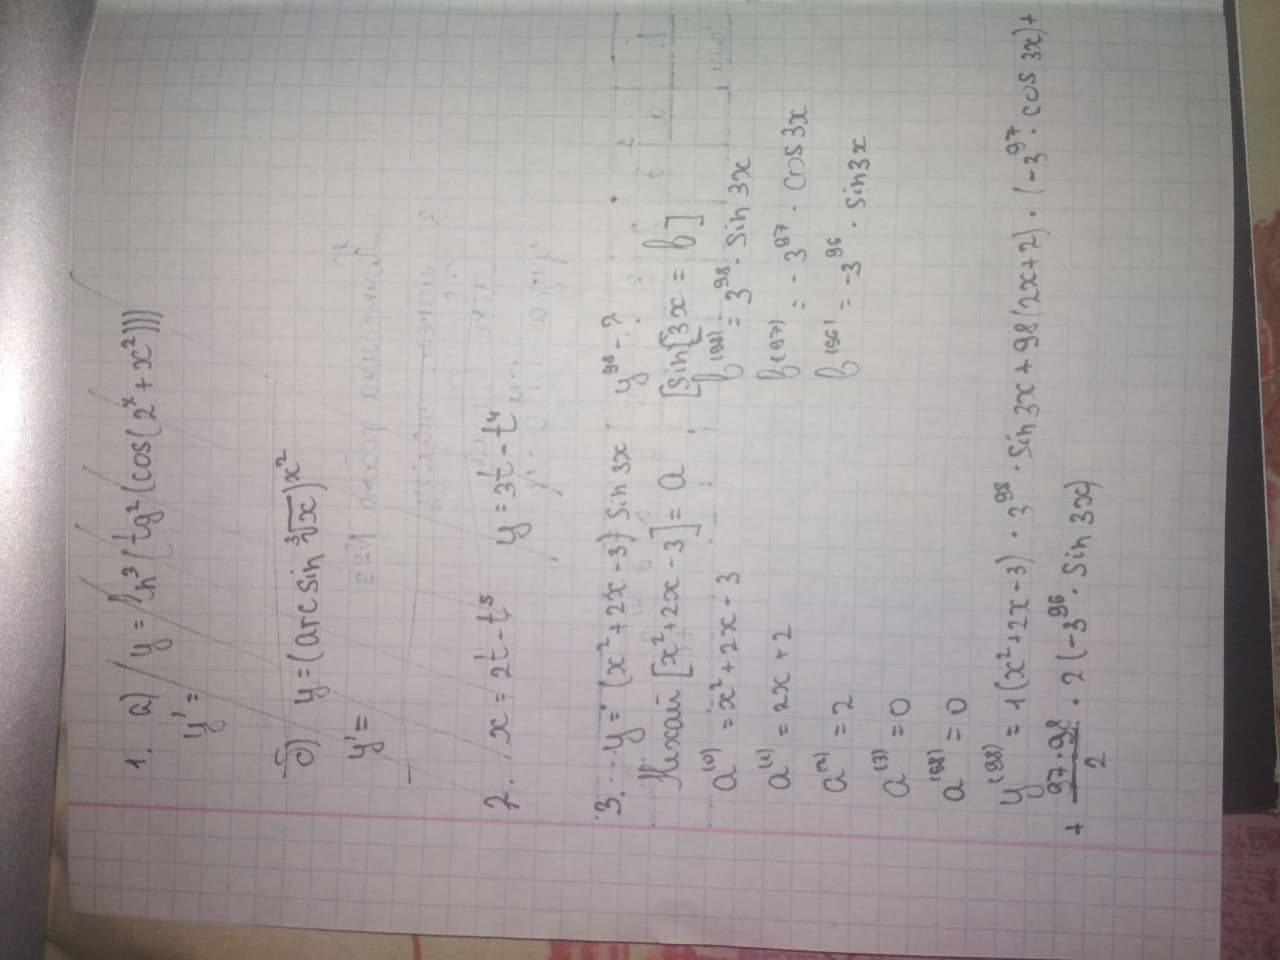 1. a) y = ln³(tg²(cos(2ˣ + x²)))
y' =
б) y = (arcsin ∛x)^x²
y' =
2. x = 2t - t⁵ y = 3t - t⁴
3. y = (x² + 2x - 3) sin 3x y⁹⁸ - ?
Нехай [x² + 2x - 3] = a [sin[3x = b]
a⁽⁰⁾ = x² + 2x - 3 b⁽⁹⁸⁾ = 3⁹⁸ · sin 3x
a⁽¹⁾ = 2x + 2 b⁽⁹⁷⁾ = - 3⁹⁷ · cos 3x
a⁽²⁾ = 2 b⁽⁹⁶⁾ = -3⁹⁶ · sin 3x
a⁽³⁾ = 0
a⁽⁹⁸⁾ = 0
y⁽⁹⁸⁾ = 1(x² + 2x - 3) · 3⁹⁸ · sin 3x + 98(2x + 2) · (-3⁹⁷ · cos 3x) +
+ 97·98/2 · 2(-3⁹⁶ · sin 3x)